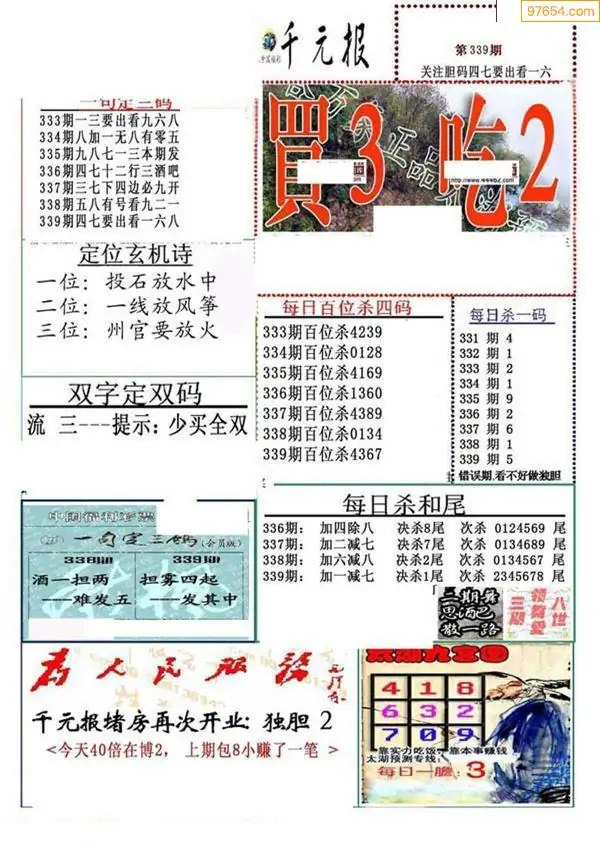 97654.com
千元报
第339期
关注胆码四七要出看一六
一句定三码
333期一三要出看九六八
334期八加一无八有零五
335期九八七一三本期发
336期四七十二行三酒吧
337期三七下四边必九开
338期五八有号看九二一
339期四七要出看一六八
買3 吃2
http://www.444b2.com
定位玄机诗
一位：投石放水中
二位：一线放风筝
三位：州官要放火
双字定双码
流 三---提示：少买全双
每日百位杀四码
333期百位杀4239
334期百位杀0128
335期百位杀4169
336期百位杀1360
337期百位杀4389
338期百位杀0134
339期百位杀4367
每日杀一码
331 期 4
332 期 1
333 期 2
334 期 1
335 期 9
336 期 2
337 期 6
338 期 1
339 期 5
错误期,看不好做独胆
每日杀和尾
336期： 加四除八 决杀8尾 次杀 0124569 尾
337期： 加二减七 决杀7尾 次杀 0134689 尾
338期： 加六减八 决杀2尾 次杀 0134567 尾
339期： 加一减七 决杀1尾 次杀 2345678 尾
中国福利彩票
一句定三码(会员版)
338期
酒一担两
---难发五
339期
担雾四起
---发其中
思酒己
散一路
三期
八世
为人民服务
千元报堵房再次开业: 独胆 2
<今天40倍在博2， 上期包8小赚了一笔 >
太湖九宫图
4 1 8
6 3 2
7 0 9
靠实力吃饭，靠本事赚钱
太湖预测专线:
每日一胆：3